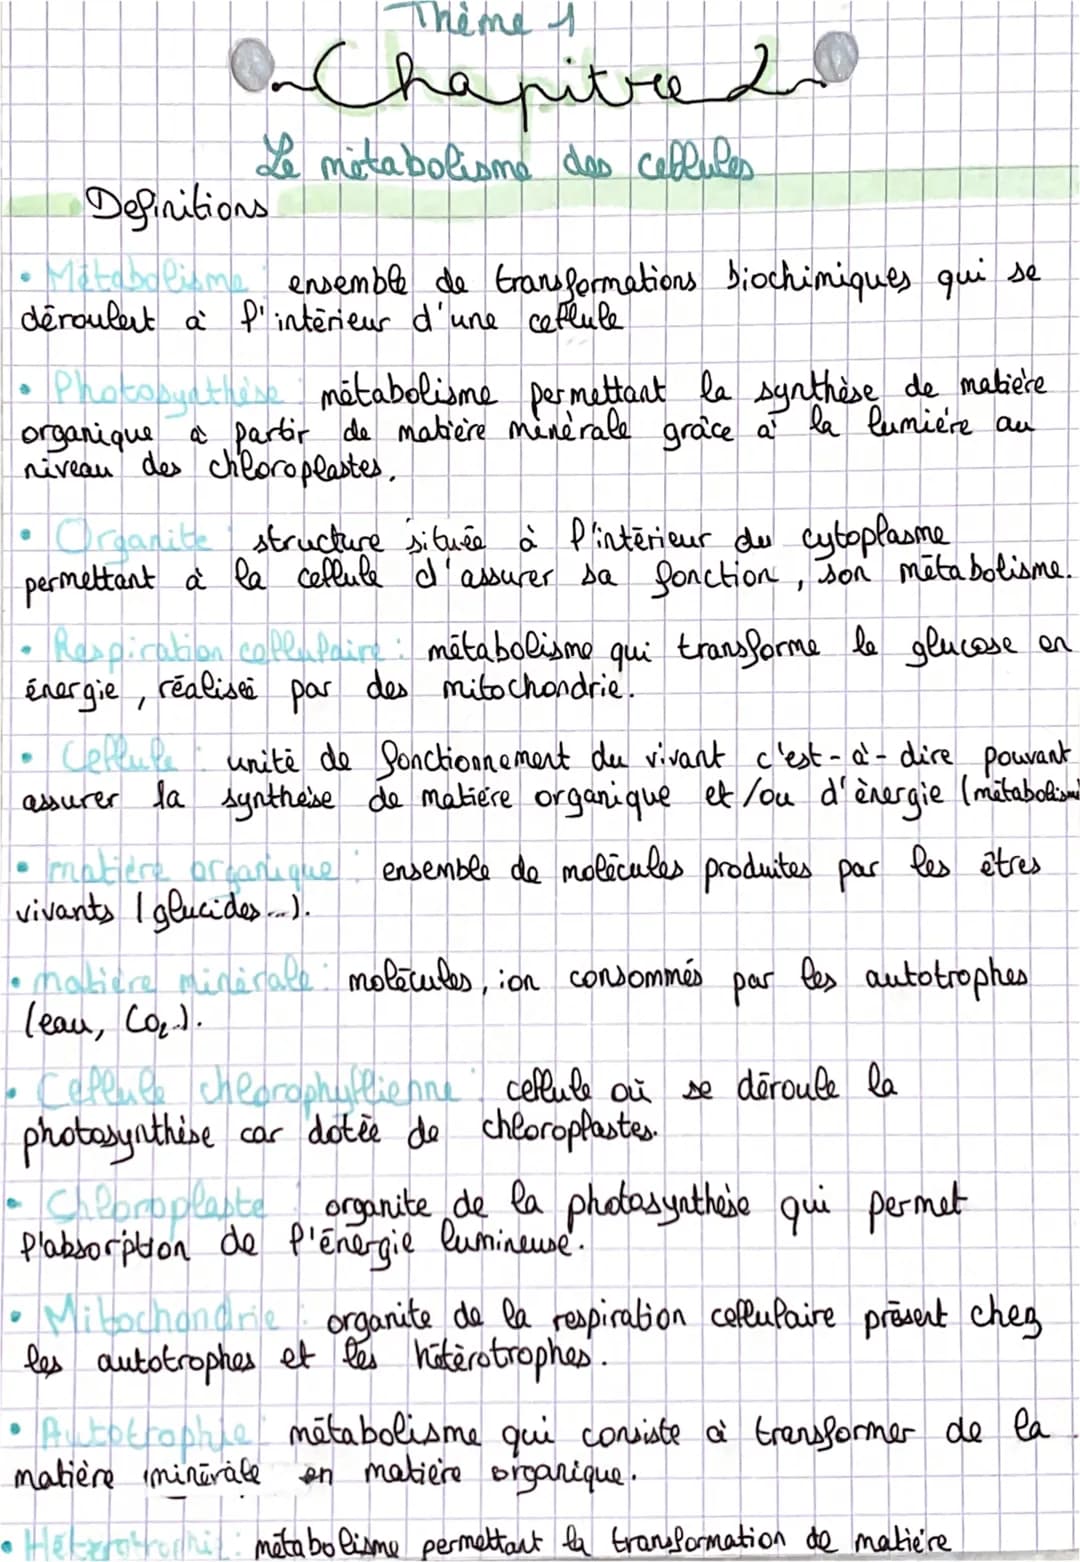 Thème 1
Chapitre 2
Le métabolisme des cellules
Definitions
• Métabolisme : ensemble de transformations biochimiques qui se
déroulent à l'intérieur d'une cellule
• Photosynthèse : métabolisme permettant la synthèse de matière
organique à partir de matière minérale grâce à la lumière au
niveau des chloroplastes.
• Organite : structure située à l'intérieur du cytoplasme
permettant à la cellule d'assurer sa fonction, son métabolisme.
• Respiration cellulaire : métabolisme qui transforme le glucose en
énergie, réalisée par des mitochondrie.
• Cellule : unité de fonctionnement du vivant c'est-à-dire pouvant
assurer la synthèse de matière organique et/ou d'énergie (métabolisme
• matière organique : ensemble de molécules produites par les êtres
vivants (glucides...).
• matière minérale : molécules, ion consommés par les autotrophes
(eau, CO2).
• Cellule chlorophyllienne : cellule où se déroule la
photosynthèse car dotée de chloroplastes.
• Chloroplaste : organite de la photosynthèse qui permet
l'absorption de l'énergie lumineuse.
• Mitochondrie : organite de la respiration cellulaire présent chez
les autotrophes et les hétérotrophes.
• Autotrophie : métabolisme qui consiste à transformer de la
matière minérale en matière organique.
• Hétérotrophie : métabolisme permettant la transformation de matière